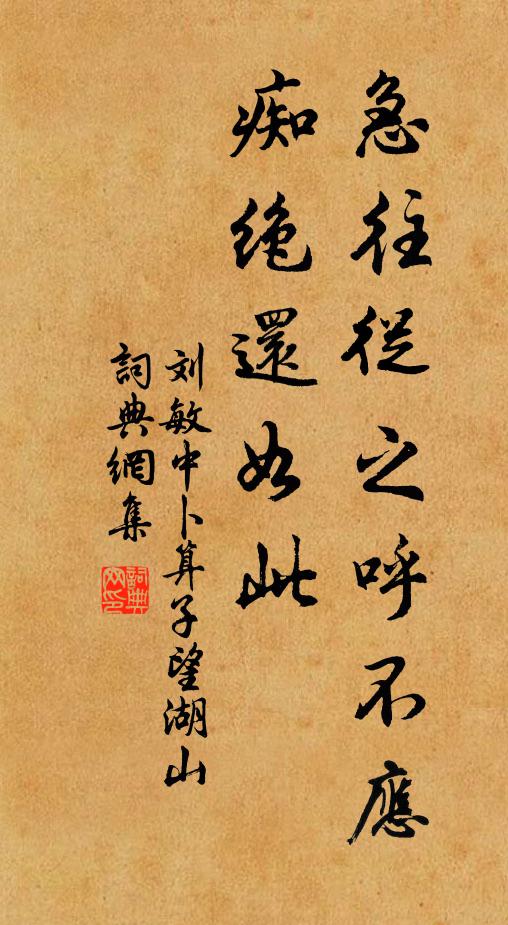 急往從之呼不應
痴绝還如此
刘敏中卜算子望湖山
詞典網集
詞典网印